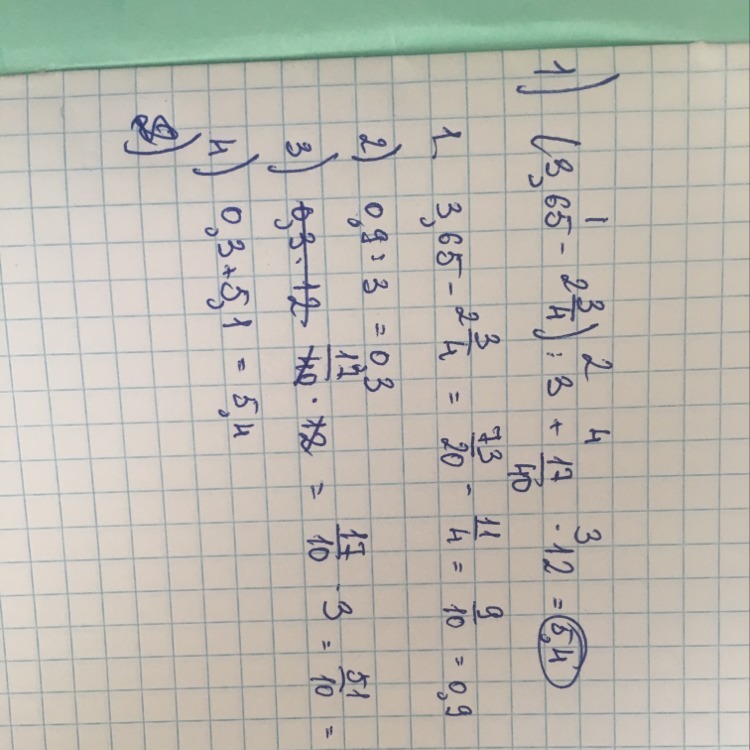 1) (3,65 - 2 3/4) : 3 + 17/40 · 12 = 5,4
1 2 4 3
1. 3,65 - 2 3/4 = 73/20 - 11/4 = 9/10 = 0,9
2) 0,9 : 3 = 0,3
3) 0,3 · 12 17/40 · 12 = 17/10 · 3 = 51/10 =
4) 0,3 + 5,1 = 5,4